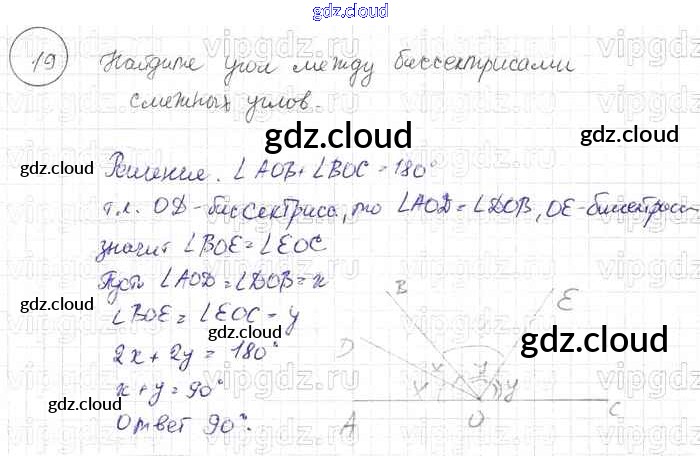 gdz.cloud
19 Найдите угол между биссектрисами
смежных углов.
gdz.cloud
gdz.cloud
gdz.cloud
Решение. ∠AOB + ∠BOC = 180°
т.к. OD - биссектриса, то ∠AOD = ∠DOB, OE - биссектрис
значит ∠BOE = ∠EOC
Пусть ∠AOD = ∠DOB = x
∠BOE = ∠EOC = y
2x + 2y = 180°
x + y = 90°
Ответ 90°.
gdz.cloud
gdz.cloud
gdz.cloud
gdz.cloud
B
E
D
x
x
y
y
A
O
C
vipgdz.cloud